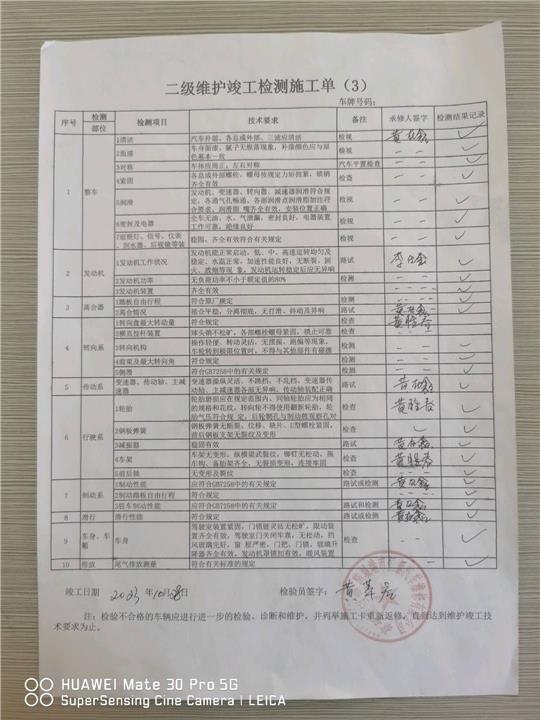 二级维护竣工检测施工单（3）
车牌号码：
序号 检测部位 检测项目 技术要求 备注 承修人签字 检测结果记录
1 整车 1清洁 汽车外部、各总成外部、三滤应清洁 检视
2面漆 车身面漆、腻子无脱落现象，补漆颜色应与原色基本一致 检视
3对称 车体应周正，左右对称 汽车平置检查
4紧固 各总成外部螺栓、螺母按规定力矩拧紧，锁销齐全有效 检查
5润滑 发动机、变速器、转向器、减速器润滑符合规定，各通气孔畅通，各部润滑点润滑脂加注符合要求，润滑嘴齐全有效，安装位置正确 检视
6密封及电器 全车无油、水、气泄漏，密封良好，电器装置工作可靠，绝缘良好 检视
7前照灯、信号、仪表、刮水器、后视镜等装 稳固、齐全有效符合有关规定 检视
2 发动机 1发动机工作状况 发动机能正常启动，低、中、高速运转均匀及稳定、水温正常，加速性能良好，无断裂、回火、放炮等现象，发动机运转稳定后应无异响 路试
2发动机功率 无负荷功率不小于额定值的80% 检测
3发动机装置 齐全有效
3 离合器 1踏板自由行程 符合原厂规定 检测
2离合情况 接合平稳，分离彻底，无打滑、抖动及异响 路试
4 转向系 1转向盘最大转动量 符合规定 检查
2横直拉杆装置 球头销不松旷，各部螺栓螺母紧固，锁止可靠 检查
3转向机构 操作轻便、转动灵活，无摆振、跑偏等现象，车轮转到极限位置时，不得与其他部件有碰擦 检测
4前束及最大转向角 符合规定 检测
5侧滑 符合GB7258中的有关规定 检测
5 传动系 变速器、传动轴、主减速器 变速器操纵灵活、不跳档、不乱档，变速器传动轴、主减速器各部无异响，传动轴装配正确 路试
6 行驶系 1轮胎 轮胎磨损应在规定范围内，同轴轮胎应为相同的规格和花纹，转向轮不得使用翻新轮胎，轮胎气压符合规定，后轮辋孔与制动鼓观察孔对 检查
2钢板弹簧 钢板弹簧无断裂、位移、缺片、U型螺栓紧固，前后钢板支架无裂纹及变形 检查
3减振器 稳固有效 路试
4车架 车架无变形，纵横梁无裂纹，铆钉无松动，拖车钩、备胎架齐全，无裂损变形，连接牢固 检查
5前后轴 无变形及裂纹 检查
7 制动系 1制动性能 应符合GB7258中的有关规定 路试或检测
2制动踏板自由行程 符合规定 检测
3驻车制动性能 应符合GB7258中的有关规定 路试和检测
8 滑行 滑行性能 符合规定 路试或检测
9 车身、车箱 车身 驾驶室装置紧固，门锁链灵活无松旷，限动装置齐全有效，驾驶室门关闭牢靠，无松动，挡风玻璃完好，窗框严密，门把、门锁、玻璃升降器齐全有效，发动机罩锁扣有效，暖风装置 检查
10 排放 尾气排放测量 符合有关标准的规定 检测
竣工日期 2023年10月28日 检验员签字：
注：检验不合格的车辆应进行进一步的检验、诊断和维护，并列举施工卡重新返修，直到达到维护竣工技术要求为止。
HUAWEI Mate 30 Pro 5G
SuperSensing Cine Camera | LEICA